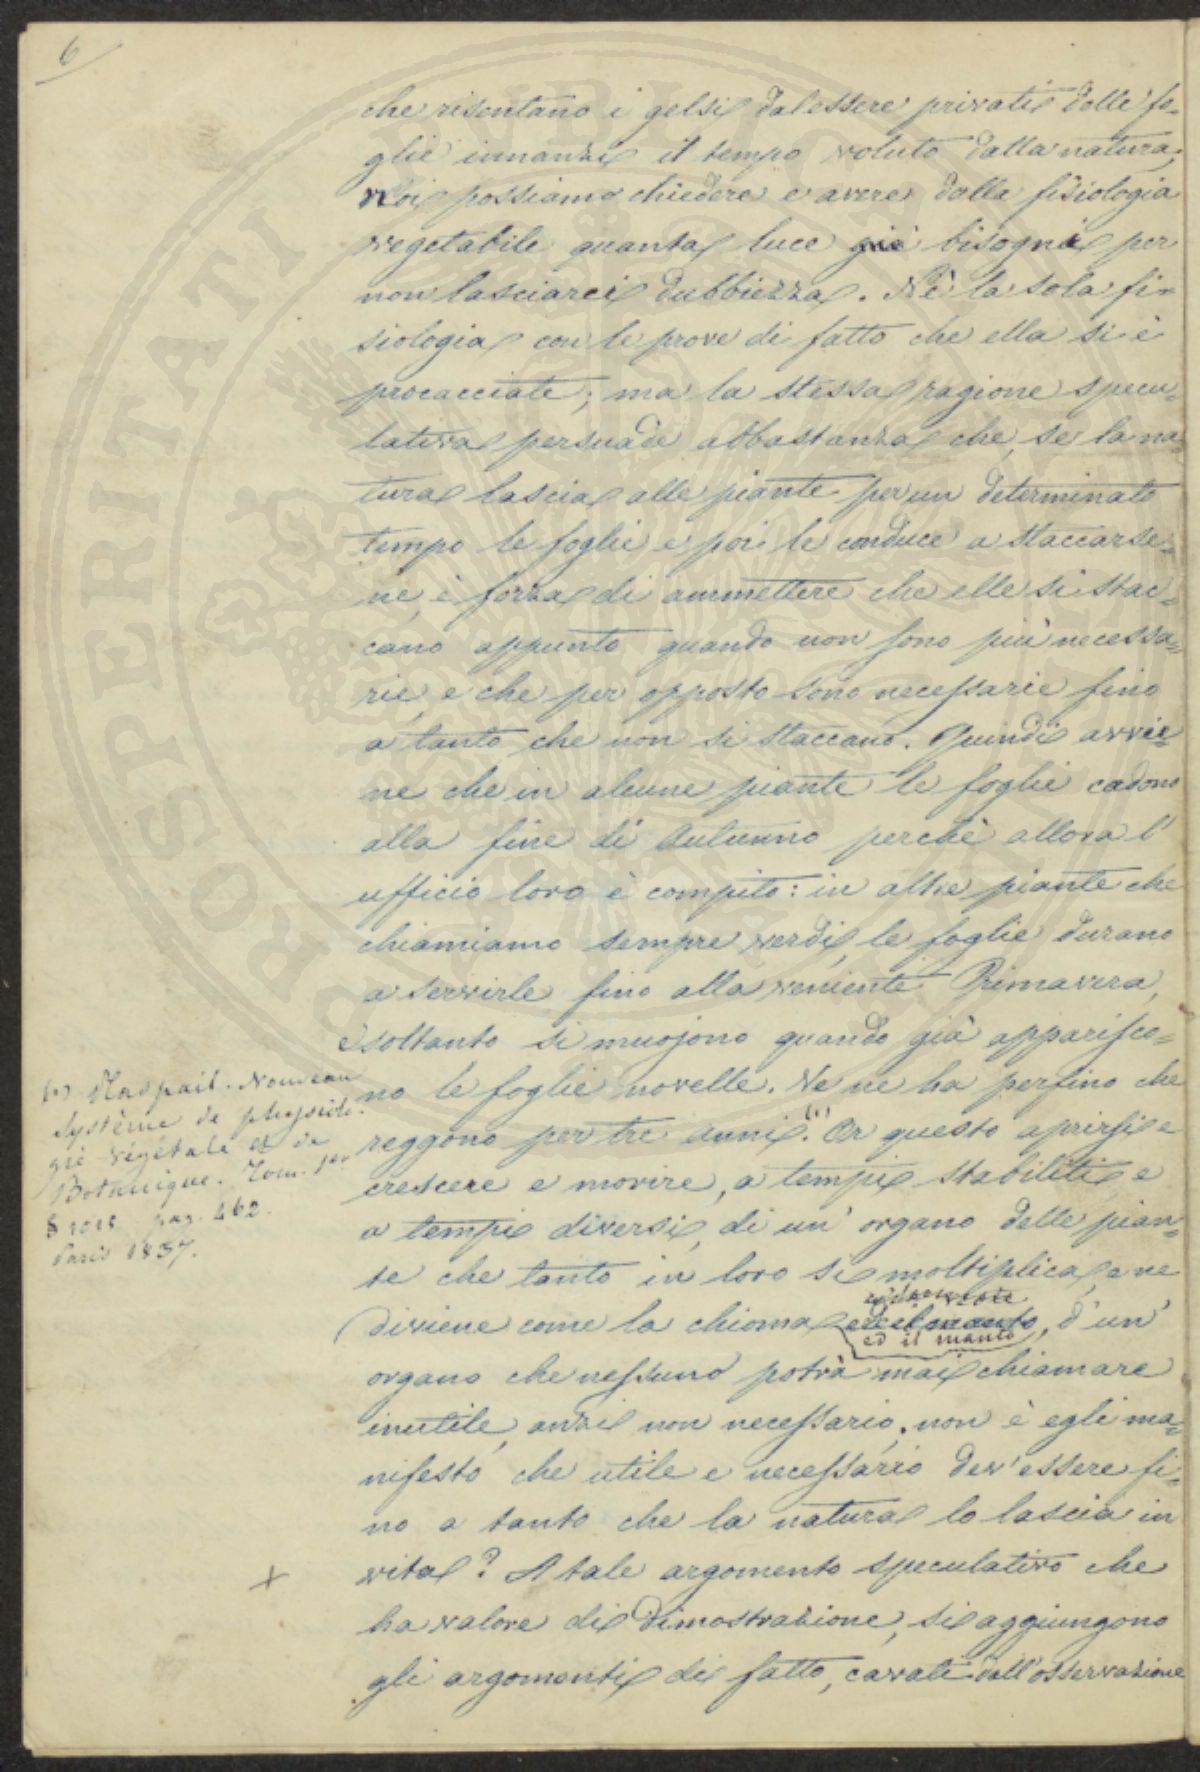 6
che risentano i gelsi dal essere privati delle fo-
glie innanzi il tempo voluto dalla natura,
Noi possiamo chiedere e avere dalla fisiologia
vegetabile quanta luce bisogni per
non lasciarci dubbiezza. Nè la sola fi=
siologia con le prove di fatto che ella si è
procacciate; ma la stessa ragione specu=
lativa persuade abbastanza che, se la na=
tura lascia alle piante per un determinato
tempo le foglie e poi le conduce a staccarse=
ne, è forza di ammettere che elle si stac=
cano appunto quando non sono più necessa=
rie, e che per opposto sono necessarie fino
a tanto che non si staccano. Quindi avvie=
ne che in alcune piante le foglie cadono
alla fine di Autunno perchè allora l'
ufficio loro è compito: in altre piante che
chiamiamo sempre verdi, le foglie durano
a servirle fino alla veniente Primavera,
e soltanto si muojono quando già apparisco=
no le foglie novelle. Ve ne ha perfino che
reggono per tre anni.(1) Or questo aprirsi e
crescere e morire, a tempi stabiliti e
a tempi diversi, di un' organo delle pian=
te che tanto in loro si moltiplica, e ne
diviene come la chioma ed il manto, d'un'
organo che nessuno potrà mai chiamare
inutile, anzi non necessario, non è egli ma=
nifesto che utile e necessario dev'essere fi=
no a tanto che la natura lo lascia in
vita? A tale argomento speculativo che
ha valore di dimostrazione, si aggiungono
gli argomenti di fatto, cavati dall'osservazione
(1) Raspail. Nouveau
Système de physiolo-
gie végétale et de
Botanique. Tom. 1er
§ pag. 462.
Paris 1837.
+
PROSPERITATI PUBLICAE